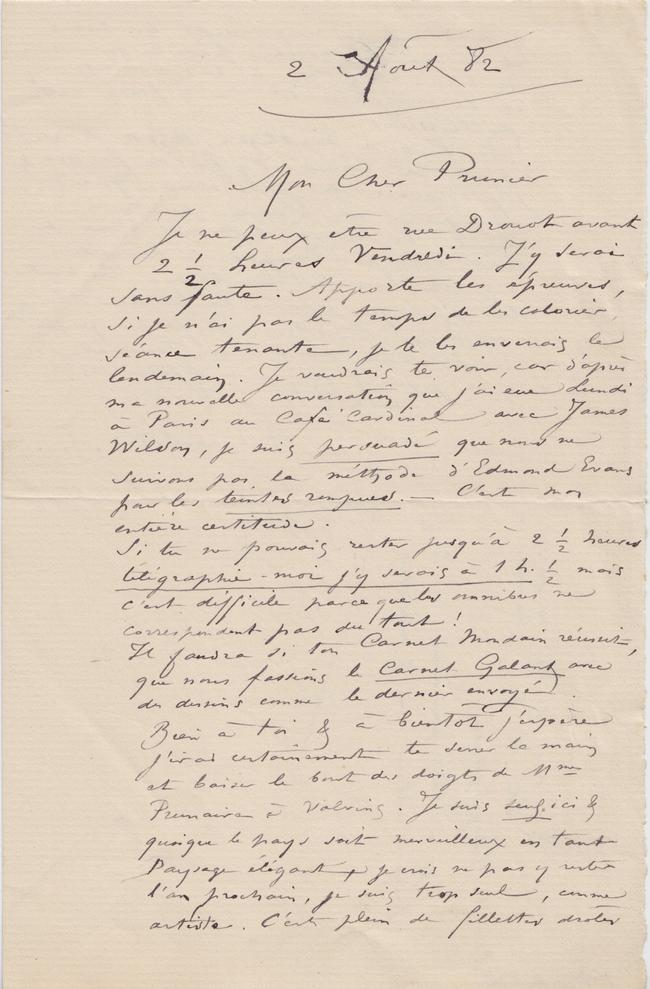 2 Août 82
Mon Cher Prunier
Je ne peux être rue Drouot avant
2 1/2 heures Vendredi. J'y serai
sans faute. Apporte les épreuves,
si je n'ai pas le temps de les colorier,
séance tenante, je te les enverrais le
lendemain. Je voudrais te voir, car d'après
ma nouvelle conversation que j'ai eue Lundi
à Paris au Café Cardinal avec James
Wilson, je suis persuadé que nous ne
suivons pas la méthode d'Edmond Evans
pour les teintes rompues. — C'est mon
entière certitude.
Si tu ne pouvais rester jusqu'à 2 1/2 heures
télégraphie-moi j'y serais à 1 h. 1/2 mais
c'est difficile parce que les omnibus ne
correspondent pas du tout !
Il faudra si ton Carnet Mondain réussit,
que nous fassions le Carnet Galant avec
des dessins comme le dernier envoyé.
Bien à toi & à bientôt j'espère
j'irai certainement te serrer la main
et baiser le bout des doigts de Mme
à . Je suis seul ici &
quoique le pays soit merveilleux en tant
Paysage élégant, je crois ne pas y rester
l'an prochain, je suis trop seul, comme
artiste. C'est plein de fillettes drôles